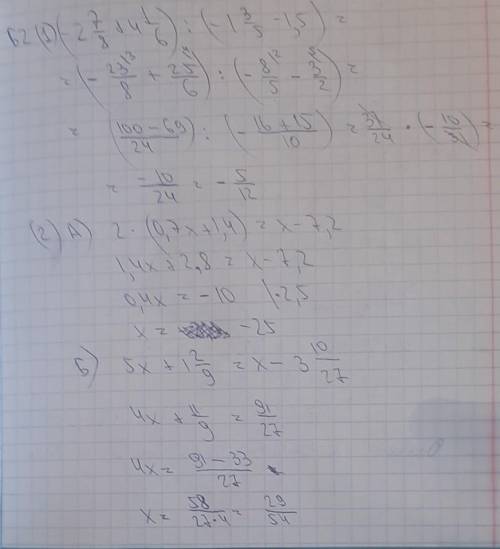 Б2 (1) (-2 7/8 + 4 1/6) : (-1 3/5 - 1,5) =
= (-23/8 + 25/6) : (-8/5 - 3/2) =
= (100 - 69)/24 : (-(16 + 15)/10) = 31/24 · (-10/31) =
= -10/24 = -5/12
(2) А) 2 · (0,7x + 1,4) = x - 7,2
1,4x + 2,8 = x - 7,2
0,4x = -10 | · 2,5
x = -25
Б) 5x + 1 2/9 = x - 3 10/27
4x + 11/9 = 91/27
4x = (91 - 33)/27
x = 58/(27·4) = 29/54